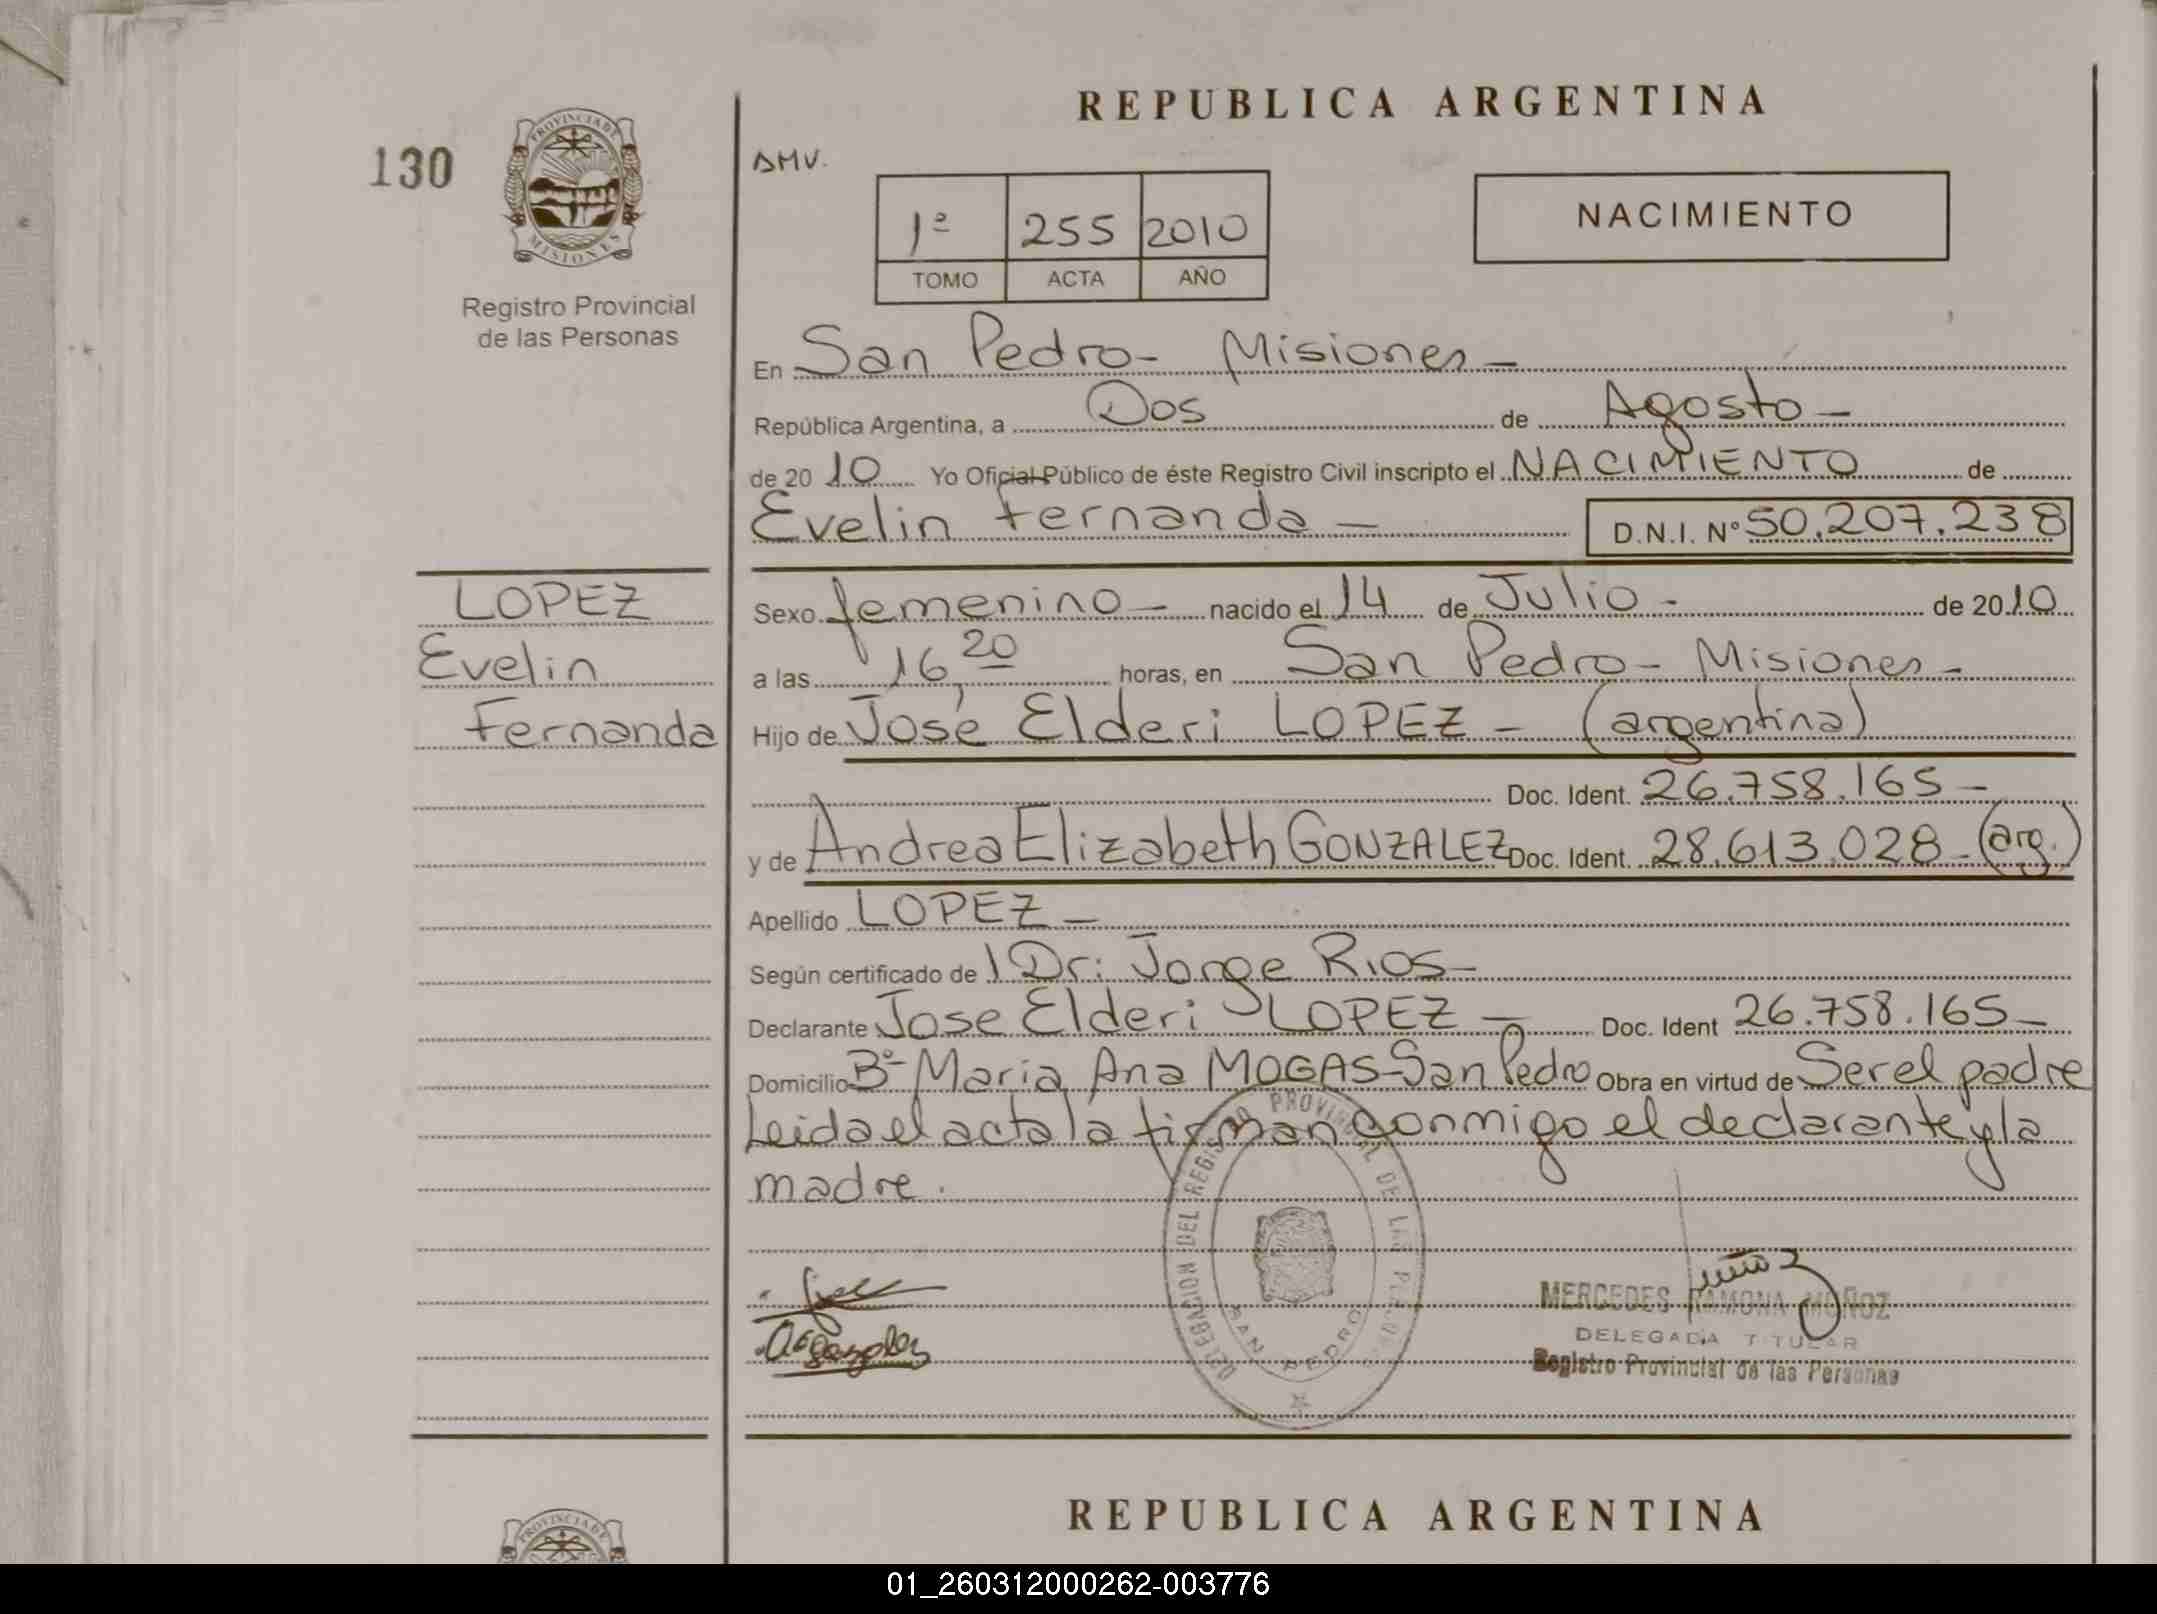 REPUBLICA ARGENTINA
130
PROVINCIA DE
MISIONES
Registro Provincial
de las Personas
DMV.
1º 255 2010
TOMO ACTA AÑO
NACIMIENTO
En San Pedro - Misiones -
República Argentina, a Dos de Agosto -
de 20 10 Yo Oficial Público de éste Registro Civil inscripto el NACIMIENTO de
Evelin Fernanda - D.N.I. Nº 50.207.238
LOPEZ
Evelin
Fernanda
Sexo femenino - nacido el 14 de Julio - de 2010
a las 16,20 horas, en San Pedro - Misiones -
Hijo de José Elderi LOPEZ - (argentina)
Doc. Ident. 26.758.165 -
y de Andrea Elizabeth GONZALEZ Doc. Ident. 28.613.028 - (arg.)
Apellido LOPEZ -
Según certificado de l Dr: Jorge Rios -
Declarante Jose Elderi LOPEZ - Doc. Ident 26.758.165 -
Domicilio Bº Maria Ana MOGAS - San Pedro Obra en virtud de Ser el padre
Leida el acta la firman conmigo el declarante y la
madre.
DELEGACION DEL REGISTRO PROVINCIAL DE LAS PERSONAS
SAN PEDRO
MERCEDES RAMONA MUÑOZ
DELEGADA TITULAR
Registro Provincial de las Personas
REPUBLICA ARGENTINA
PROVINCIA DE
01_260312000262-003776